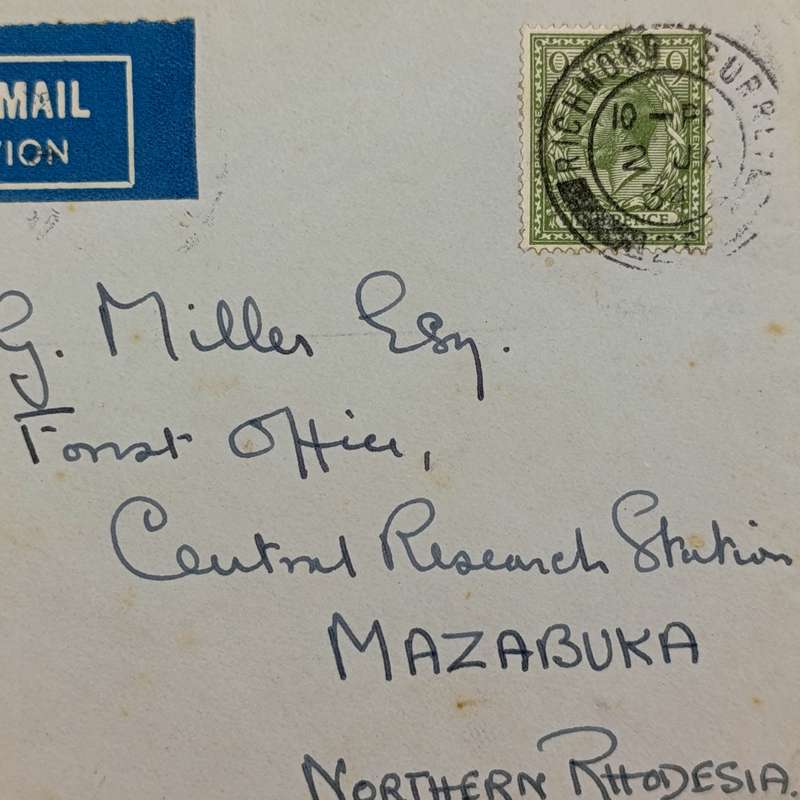 MAIL
TION
RICHMOND, SURREY
10 — PM
2 JY
34
NINE PENCE
G. Miller Esq.
Forest Office,
Central Research Station
MAZABUKA
NORTHERN RHODESIA.